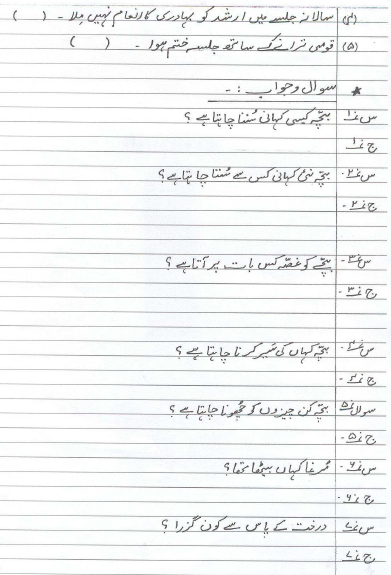 (۴) سالانہ جلسے میں ارشد کو بہادری کا انعام نہیں مِلا۔ ( )
(۵) قومی ترانے کے ساتھ جلسہ ختم ہوا۔ ( )
★ سوال وجواب :-
س نمبر۱ بچّہ کیسی کہانی سُننا چاہتا ہے؟
ج نمبر۱
س نمبر۲- بچّہ نئی کہانی کس سے سُننا چاہتا ہے؟
ج نمبر۲-
س نمبر۳- بچّے کو غصّہ کس بات پر آتا ہے؟
ج نمبر۳-
س نمبر۴- بچّہ کہاں کی سَیر کرنا چاہتا ہے؟
ج نمبر۴-
سوال نمبر۵ بچّہ کن چیزوں کو چُھونا چاہتا ہے؟
ج نمبر۵-
س نمبر۶- مُرغا کہاں بیٹھا تھا؟
ج نمبر۶-
س نمبر۷ درخت کے پاس سے کون گزرا؟
ج نمبر۷